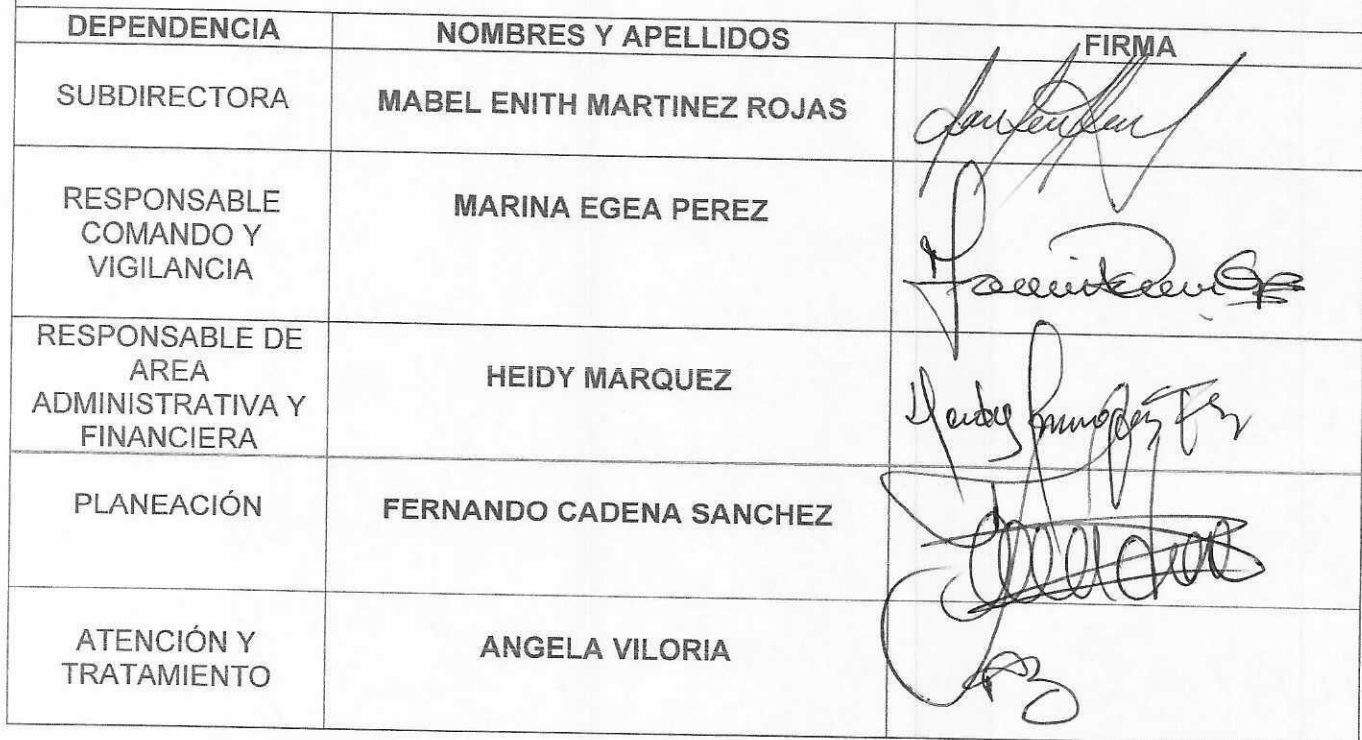 DEPENDENCIA NOMBRES Y APELLIDOS FIRMA
SUBDIRECTORA MABEL ENITH MARTINEZ ROJAS
RESPONSABLE
COMANDO Y
VIGILANCIA
MARINA EGEA PEREZ
RESPONSABLE DE
AREA
ADMINISTRATIVA Y
FINANCIERA
HEIDY MARQUEZ
PLANEACIÓN FERNANDO CADENA SANCHEZ
ATENCIÓN Y
TRATAMIENTO
ANGELA VILORIA